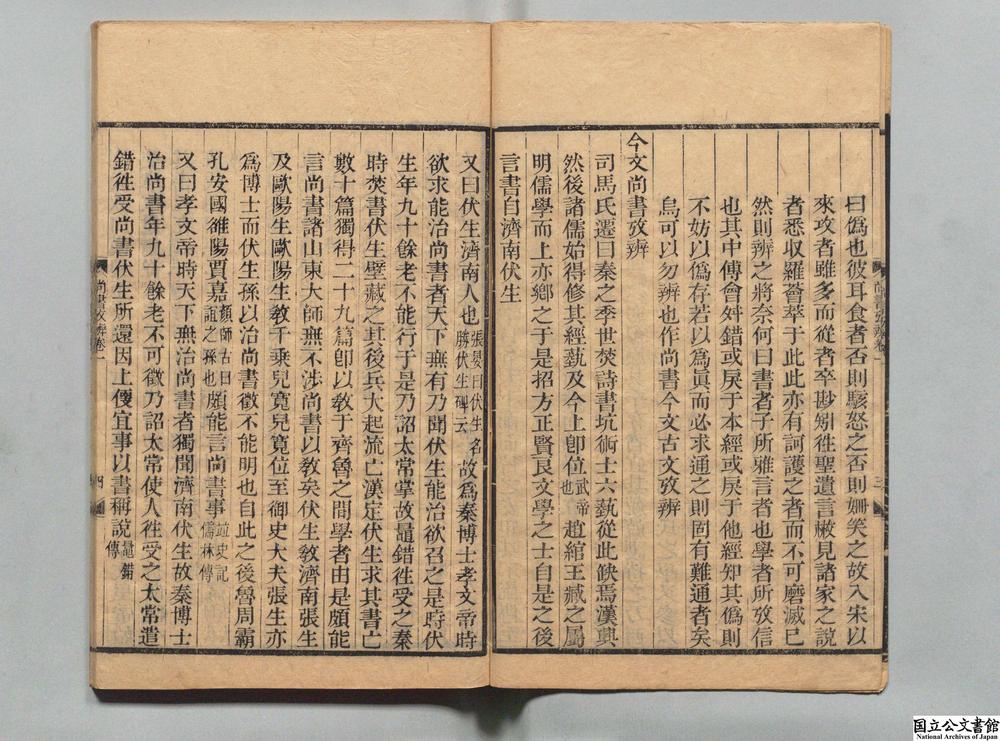 曰僞也彼耳食者否則駭怒之否則姍笑之故入宋以
來攻者雖多而從者卒尠矧往聖遺言槪見諸家之說
者悉收羅薈萃于此此亦有訶護之者而不可磨滅已
然則辨之將奈何曰書者子所雅言者也學者所攷信
也其中傅會舛錯或戾于本經或戾于他經知其僞則
不妨以僞存若以爲眞而必求通之則固有難通者矣
烏可以勿辨也作尚書今文古文攷辨
今文尚書攷辨
司馬氏遷曰秦之季世焚詩書坑術士六藝從此缺焉漢興
然後諸儒始得修其經藝及今上卽位武帝也趙綰王臧之屬
明儒學而上亦鄉之于是招方正賢良文學之士自是之後
言書自濟南伏生
尚書攷辨卷一
三
又曰伏生濟南人也張晏曰伏生名勝伏生碑云故爲秦博士孝文帝時
欲求能治尚書者天下無有乃聞伏生能治欲召之是時伏
生年九十餘老不能行于是乃詔太常掌故鼂錯往受之秦
時焚書伏生壁藏之其後兵大起流亡漢定伏生求其書亡
數十篇獨得二十九篇卽以敎于齊魯之間學者由是頗能
言尚書諸山東大師無不涉尚書以敎矣伏生敎濟南張生
及歐陽生歐陽生敎千乘兒寬兒寬位至御史大夫張生亦
爲博士而伏生孫以治尚書徵不能明也自此之後魯周霸
孔安國雒陽賈嘉顏師古曰誼之孫也頗能言尚書事竝史記儒林傳
又曰孝文帝時天下無治尚書者獨聞濟南伏生故秦博士
治尚書年九十餘老不可徵乃詔太常使人往受之太常遣
錯往受尚書伏生所還因上便宜事以書稱說鼂錯傳
尚書攷辨卷一
四
国立公文書館
National Archives of Japan